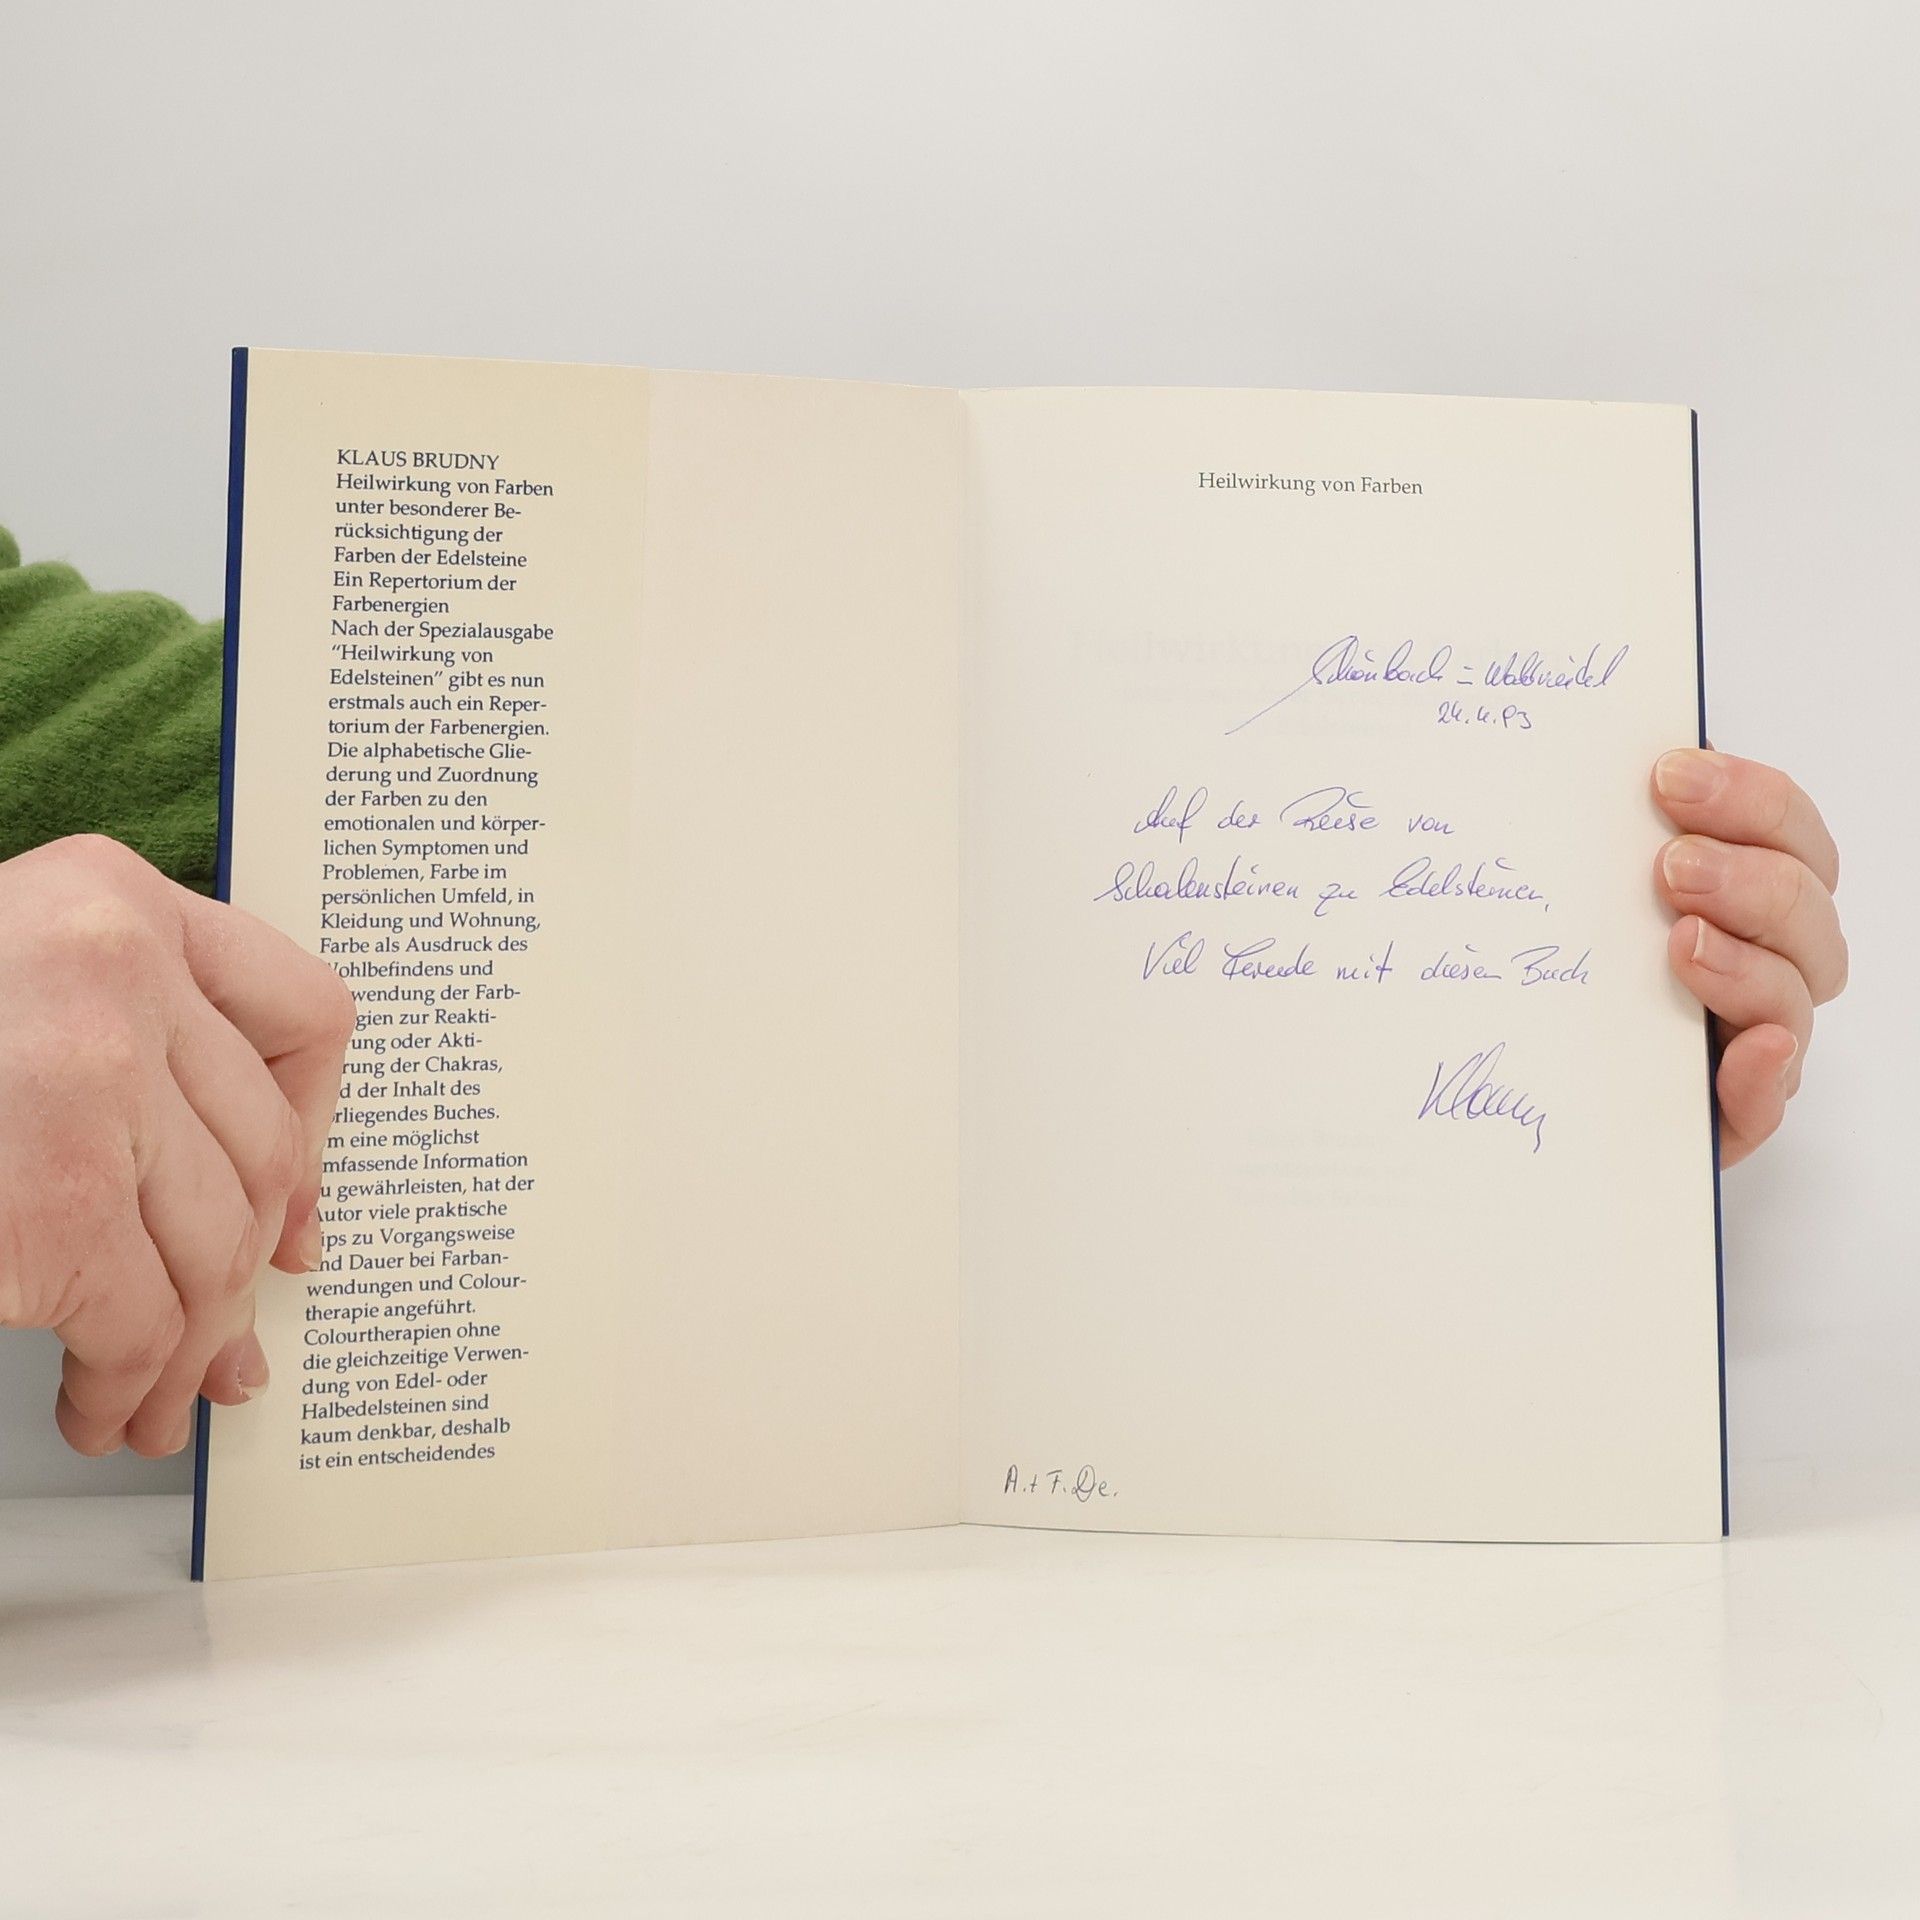 KLAUS BRUDNY
Heilwirkung von Farben
unter besonderer Be-
rücksichtigung der
Farben der Edelsteine
Ein Repertorium der
Farbenergien
Nach der Spezialausgabe
"Heilwirkung von
Edelsteinen" gibt es nun
erstmals auch ein Reper-
torium der Farbenergien.
Die alphabetische Glie-
derung und Zuordnung
der Farben zu den
emotionalen und körper-
lichen Symptomen und
Problemen, Farbe im
persönlichen Umfeld, in
Kleidung und Wohnung,
Farbe als Ausdruck des
Wohlbefindens und
wendung der Farb-
gien zur Reakti-
rung oder Akti-
rung der Chakras,
d der Inhalt des
rliegendes Buches.
m eine möglichst
mfassende Information
u gewährleisten, hat der
Autor viele praktische
ips zu Vorgangsweise
und Dauer bei Farban-
wendungen und Colour-
therapie angeführt.
Colourtherapien ohne
die gleichzeitige Verwen-
dung von Edel- oder
Halbedelsteinen sind
kaum denkbar, deshalb
ist ein entscheidendes
Heilwirkung von Farben
Schönbach =
24.4.93
Auf der Reise von
Schalensteinen zu Edelsteinen,
Viel Freude mit diesem Buch
Klaus
A. + F. De.